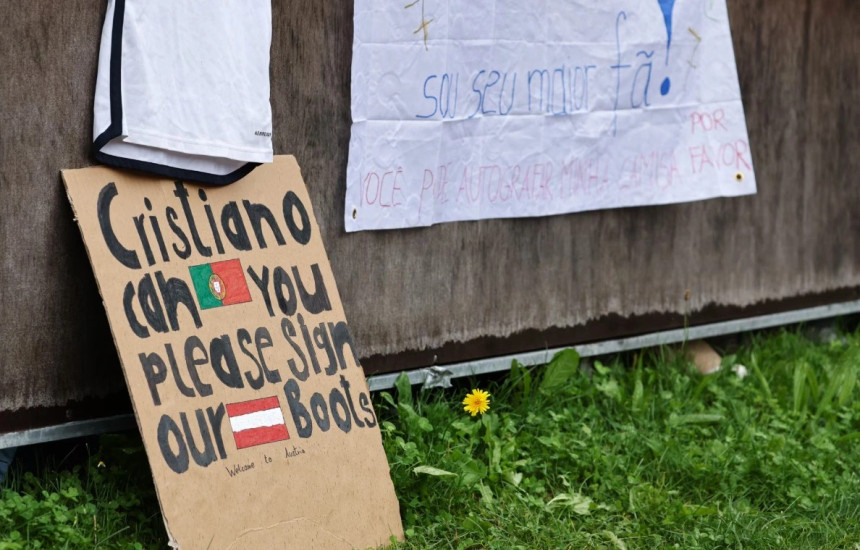 Cristiano
can you
please sign
our Boots
Welcome to Austria
sou seu maior fã!
POR
VOCE PDE AUTOGRAFAR MINHA CAMISA FAVOR